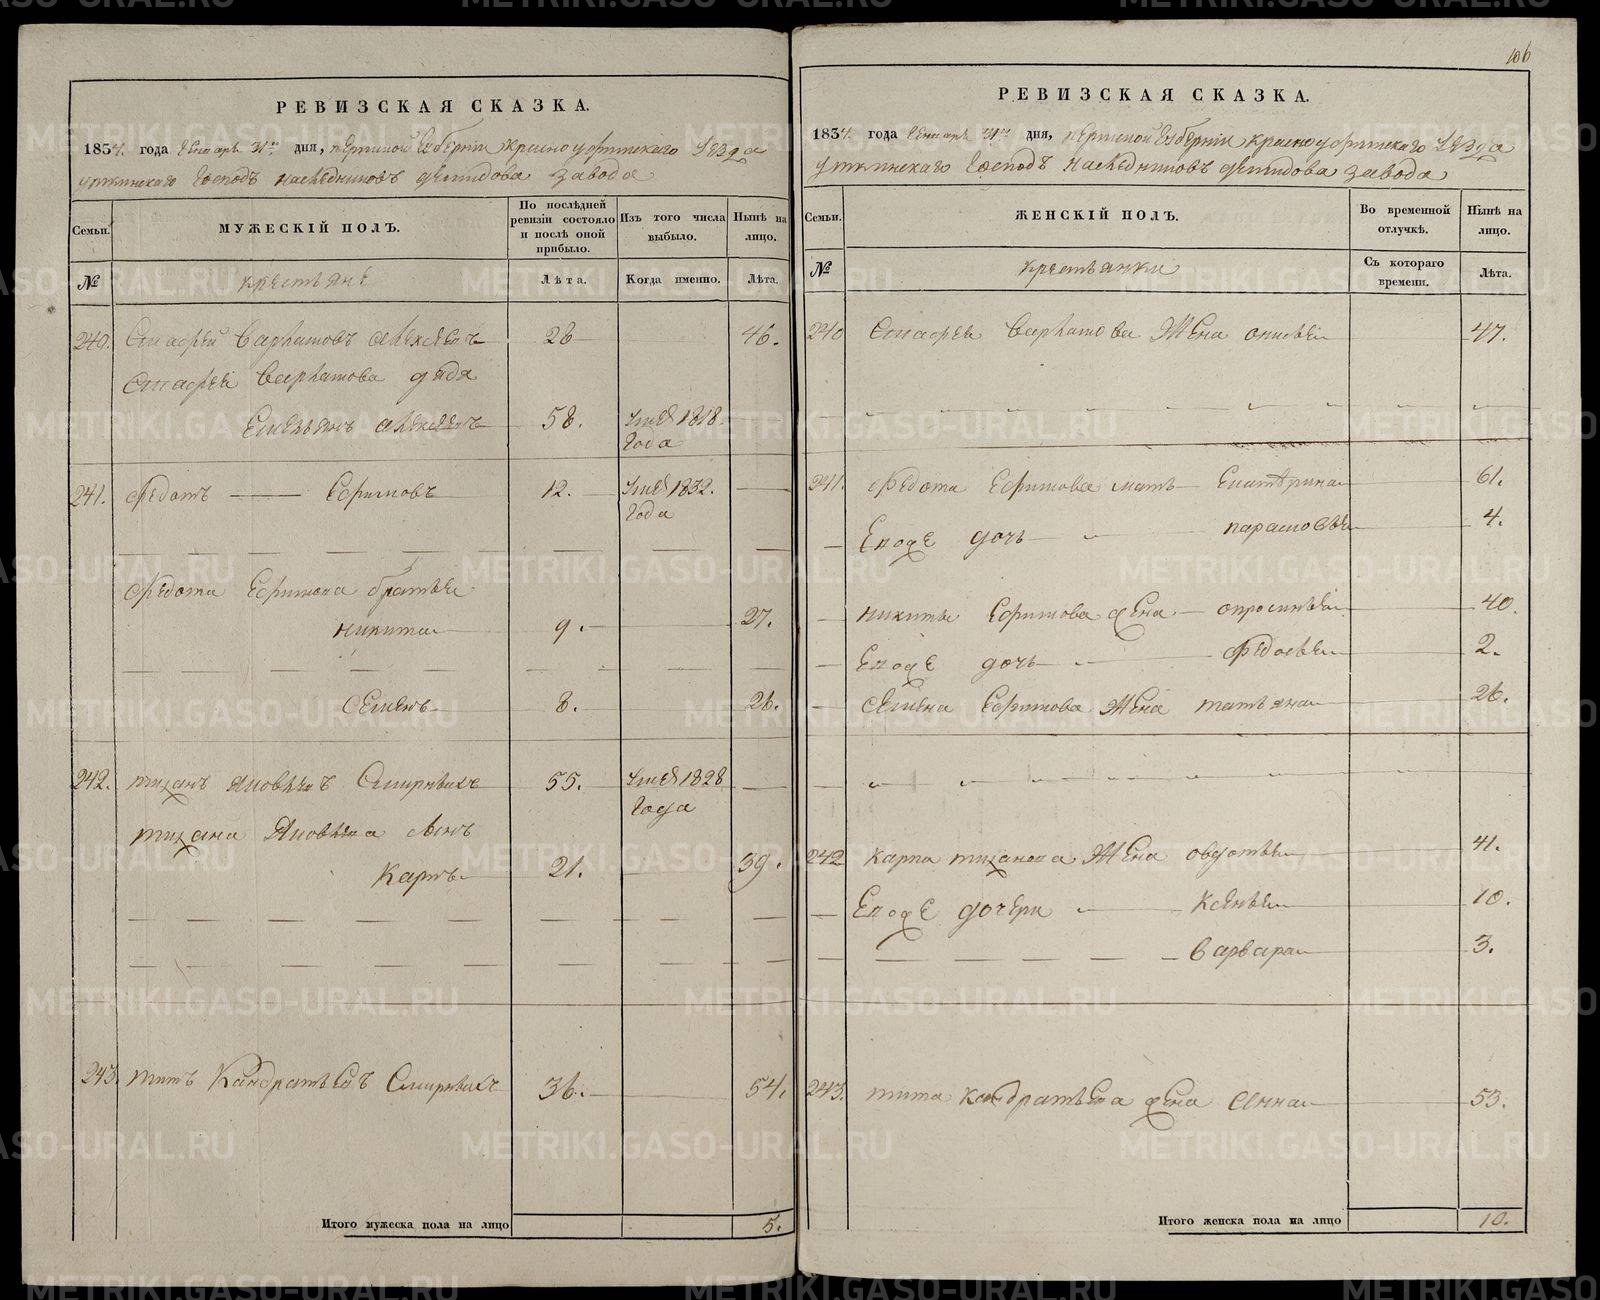 106
РЕВИЗСКАЯ СКАЗКА.
1834. года Генваря 31го дня, Пермской Губернии Красноуфимскаго Уезда
Уткинскаго Господъ Наследниковъ Демидова завода
Семьи.
МУЖЕСКІЙ ПОЛЪ.
По послѣдней ревизіи состояло и послѣ оной прибыло.
Изъ того числа выбыло.
Нынѣ на лицо.
№
крестьяне
Лѣта.
Когда именно.
Лѣта.
240. Варламовъ 28 46.
Варламова дядя
58. Умеръ 1818. Года
241. Федотъ Ефимовъ 12. Умеръ 1832. Года
Федота Ефимова братья
Никита 9. 27.
Семенъ 8. 26.
242. Тиханъ Яковлевъ Смирныхъ 55. Умеръ 1828 Года
Тихана Яковлева сынъ
Карпъ 21. 39.
243. Титъ Кандратьевъ Смирныхъ 36. 54.
Итого мужеска пола на лицо 5.
РЕВИЗСКАЯ СКАЗКА.
1834. года Генваря 31го дня, Пермской Губернии Красноуфимскаго Уезда
Уткинскаго Господъ Наследниковъ Демидова завода
Семьи.
ЖЕНСКІЙ ПОЛЪ.
Во временной отлучкѣ.
Нынѣ на лицо.
№
крестьянки
Съ котораго времени.
Лѣта.
240 Варламова Жена 47.
241. Федота Ефимова мать Екатерина 61.
Егоже дочь Парасковья 4.
Никиты Ефимова жена Апросинья 40.
Егоже дочь Федосья 2.
Семена Ефимова Жена Татьяна 26.
242 Карпа Тиханова Жена Овдотья 41.
Егоже дочери Ксенья 10.
Варвара 3.
243. Тита Кандратьева жена Анна 53.
Итого женска пола на лицо 10.
METRIKI.GASO-URAL.RU